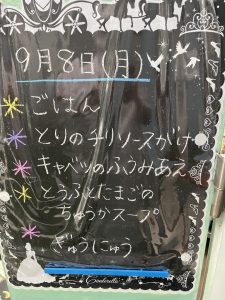 9月8日(月)
ごはん
とりのチリソースがけ
キャベツのふうみあえ
とうふとたまごの
ちゅうかスープ
ぎゅうにゅう
Cinderella